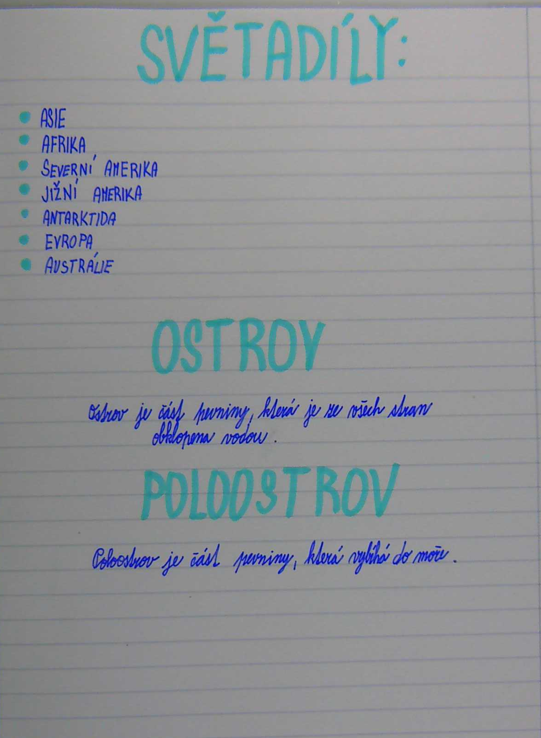 SVĚTADÍLY:
ASIE
AFRIKA
SEVERNÍ AMERIKA
JIŽNÍ AMERIKA
ANTARKTIDA
EVROPA
AUSTRÁLIE
OSTROV
Ostrov je část pevniny, která je ze všech stran
obklopena vodou.
POLOOSTROV
Poloostrov je část pevniny, která vybíhá do moře.